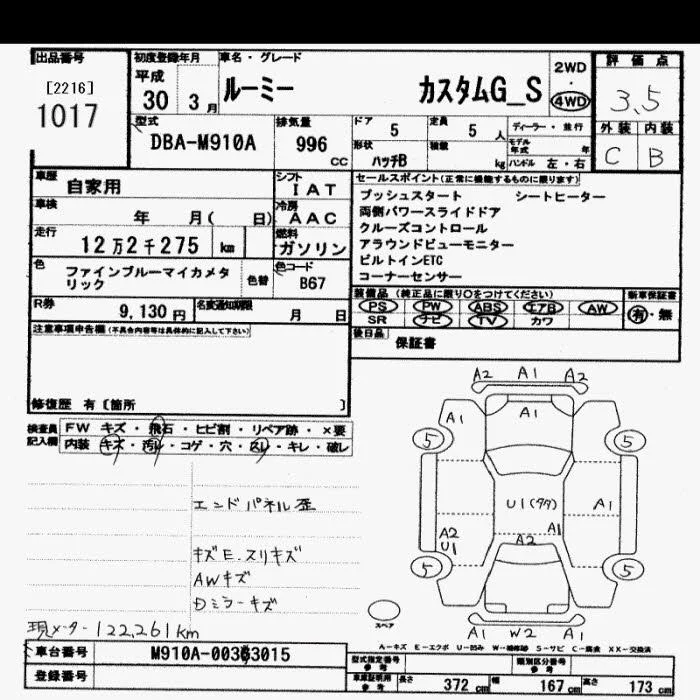 出品番号
[2216]
1017
初度登録年月
平成
30 3月
車名・グレード
ルーミー カスタムG_S
2WD
・
4WD
評価点
3.5
外装 内装
C B
型式
DBA-M910A
排気量
996 cc
ドア 5
定員 5 人
形状 ハッチB
積載 kg
ディーラー・並行
モデル年式 年
ハンドル 左・右
車歴 自家用
車検 年 月( 日)
走行 12万2千275 km
色 ファインブルーマイカメタリック
色替
シフト IAT
冷房 AAC
燃料 ガソリン
色コード B67
R券 9,130円
名変通知期限 月 日
セールスポイント(正常に機能するものに限ります)
プッシュスタート シートヒーター
両側パワースライドドア
クルーズコントロール
アラウンドビューモニター
ビルトインETC
コーナーセンサー
装備品(純正品に限り○をつけてください)
PS PW ABS エアB AW
SR ナビ TV カワ
新車保証書
有・無
後日品 保証書
注意事項申告欄(不具合内容等は具体的に記入して下さい)
修復歴 有〔箇所 〕
検査員記入欄
FW キズ・飛石・ヒビ割・リペア跡・×要
内装 キズ・汚レ・コゲ・穴・スレ・キレ・破レ
エンドパネル歪
キズE.スリキズ
AWキズ
Dミラーキズ
現メーター122,261km
A2 A1 A2
A1 A1
5 5
U1(タタ) A1
A1
A2
U1
A2
5 5
A1 W2 A1
スペア
A-キズ E-エクボ U-凹み W-補修跡 S-サビ C-腐食 XX-交換済
車台番号 M910A-0038015
登録番号
型式指定番号 参考
類別区分番号 参考
車庫証明用 参考
長さ 372 cm
幅 167 cm
高さ 173 cm